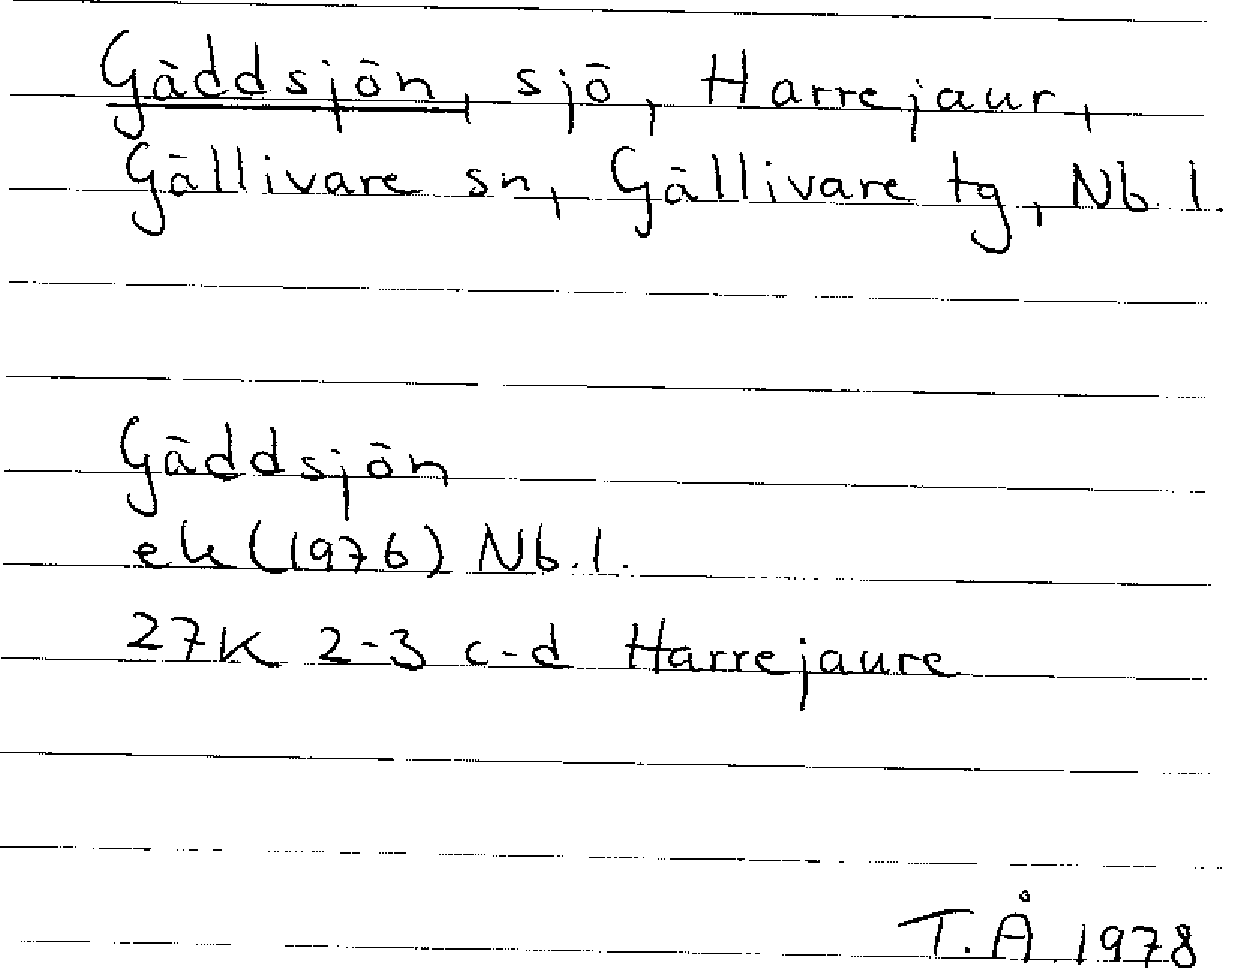 Gäddsjön, sjö, Harrejaur,
Gällivare sn, Gällivare tg, Nb. l.
Gäddsjön
ek (1976) Nb. l.
27K 2-3 c-d Harrejaure
T.Å 1978